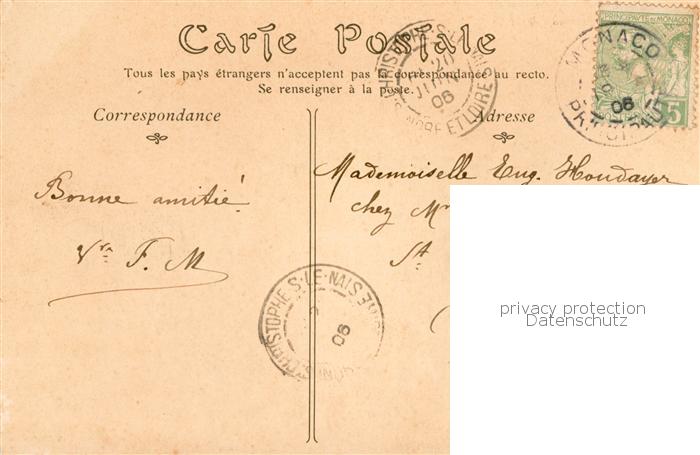 Carte Postale
Tous les pays étrangers n'acceptent pas la correspondance au recto.
Se renseigner à la poste.
Correspondance
Adresse
PRINCIPAUTÉ DE MONACO
5
MONACO
06
PRINCIPAUTÉ
20
JUIN
06
INDRE ET LOIRE
Bonne amitié
F. M
Mademoiselle Eug. Houdayer
chez Mr
St
ST CHRISTOPHE S-LE-NAIS
06
privacy protection
Datenschutz